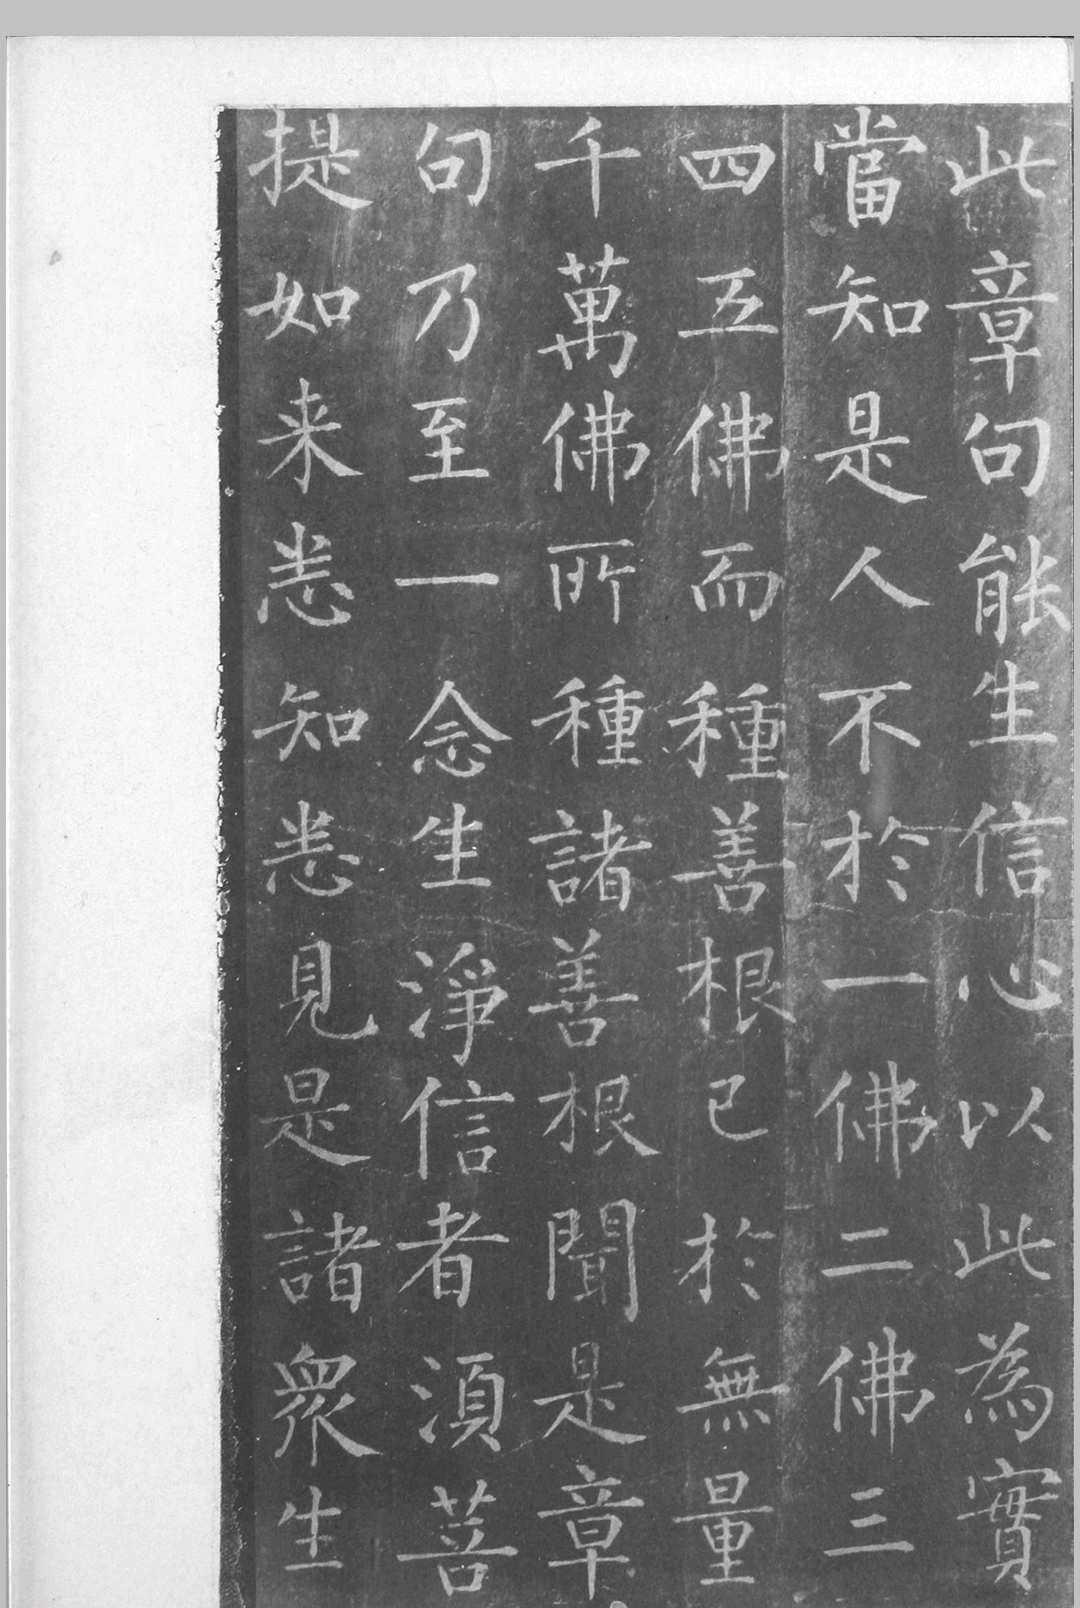 此章句能生信心以此為實
當知是人不於一佛二佛三
四五佛而種善根已於無量
千萬佛所種諸善根聞是章
句乃至一念生淨信者須菩
提如来悉知悉見是諸眾生